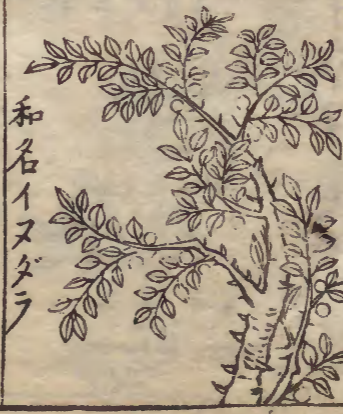 和名イヌダラ